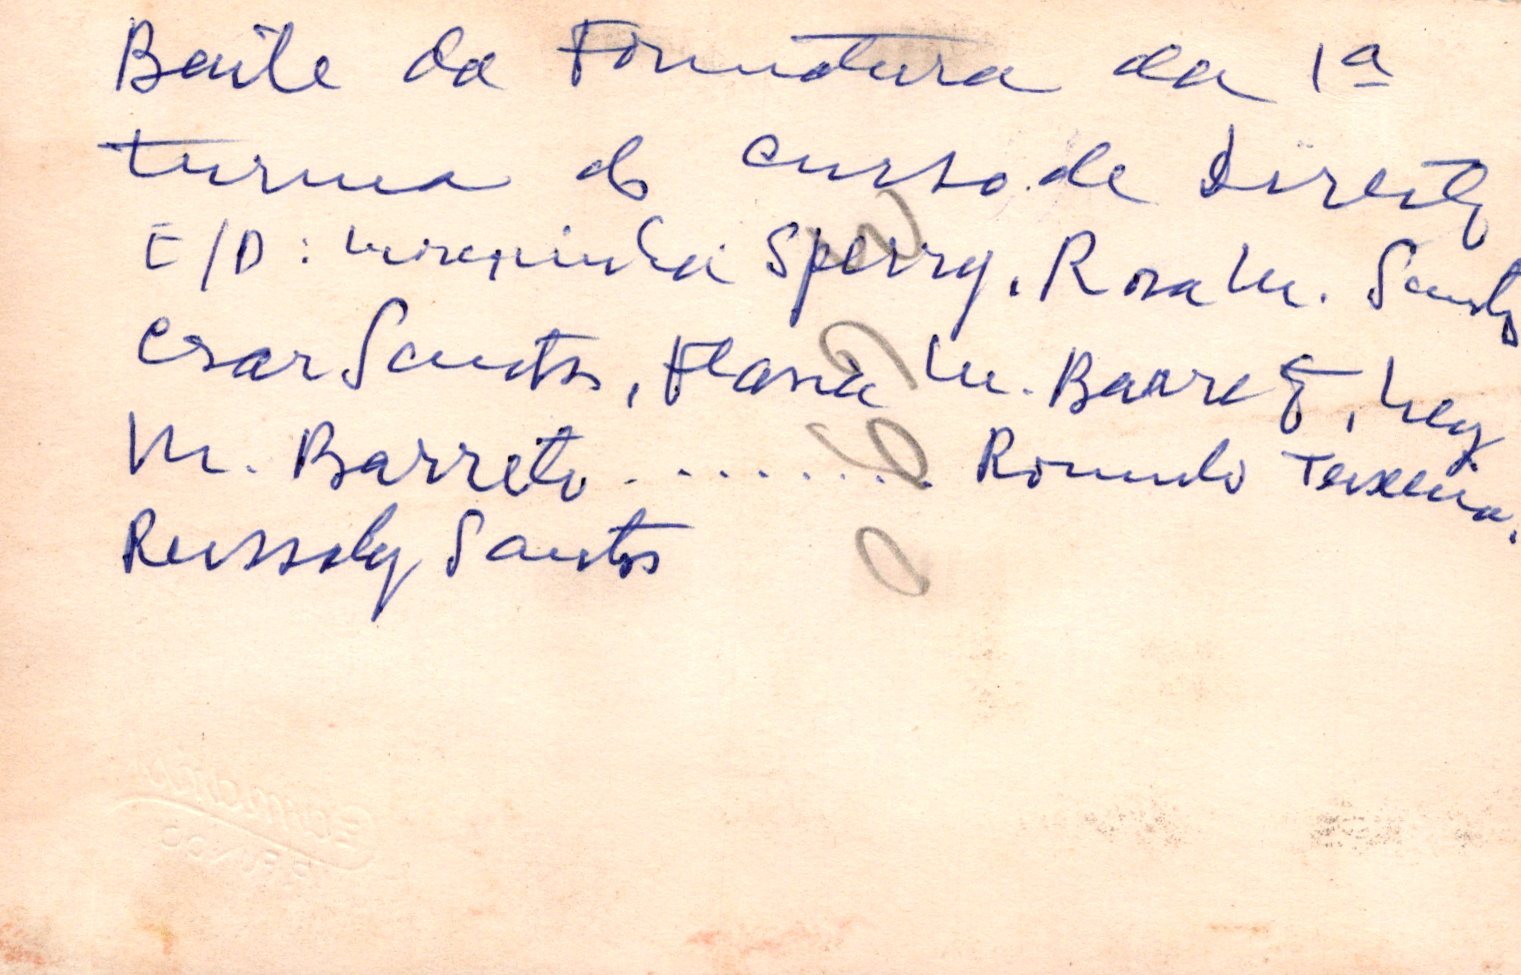 Baile da Formatura da 1ª
turma do curso de Direito
E/D: Sperry, Rosa M. Santos
Cesar Santos, Flavia M. Barreto, Ney
M. Barreto ......... Romulo Teixeira,
Reissoly Santos